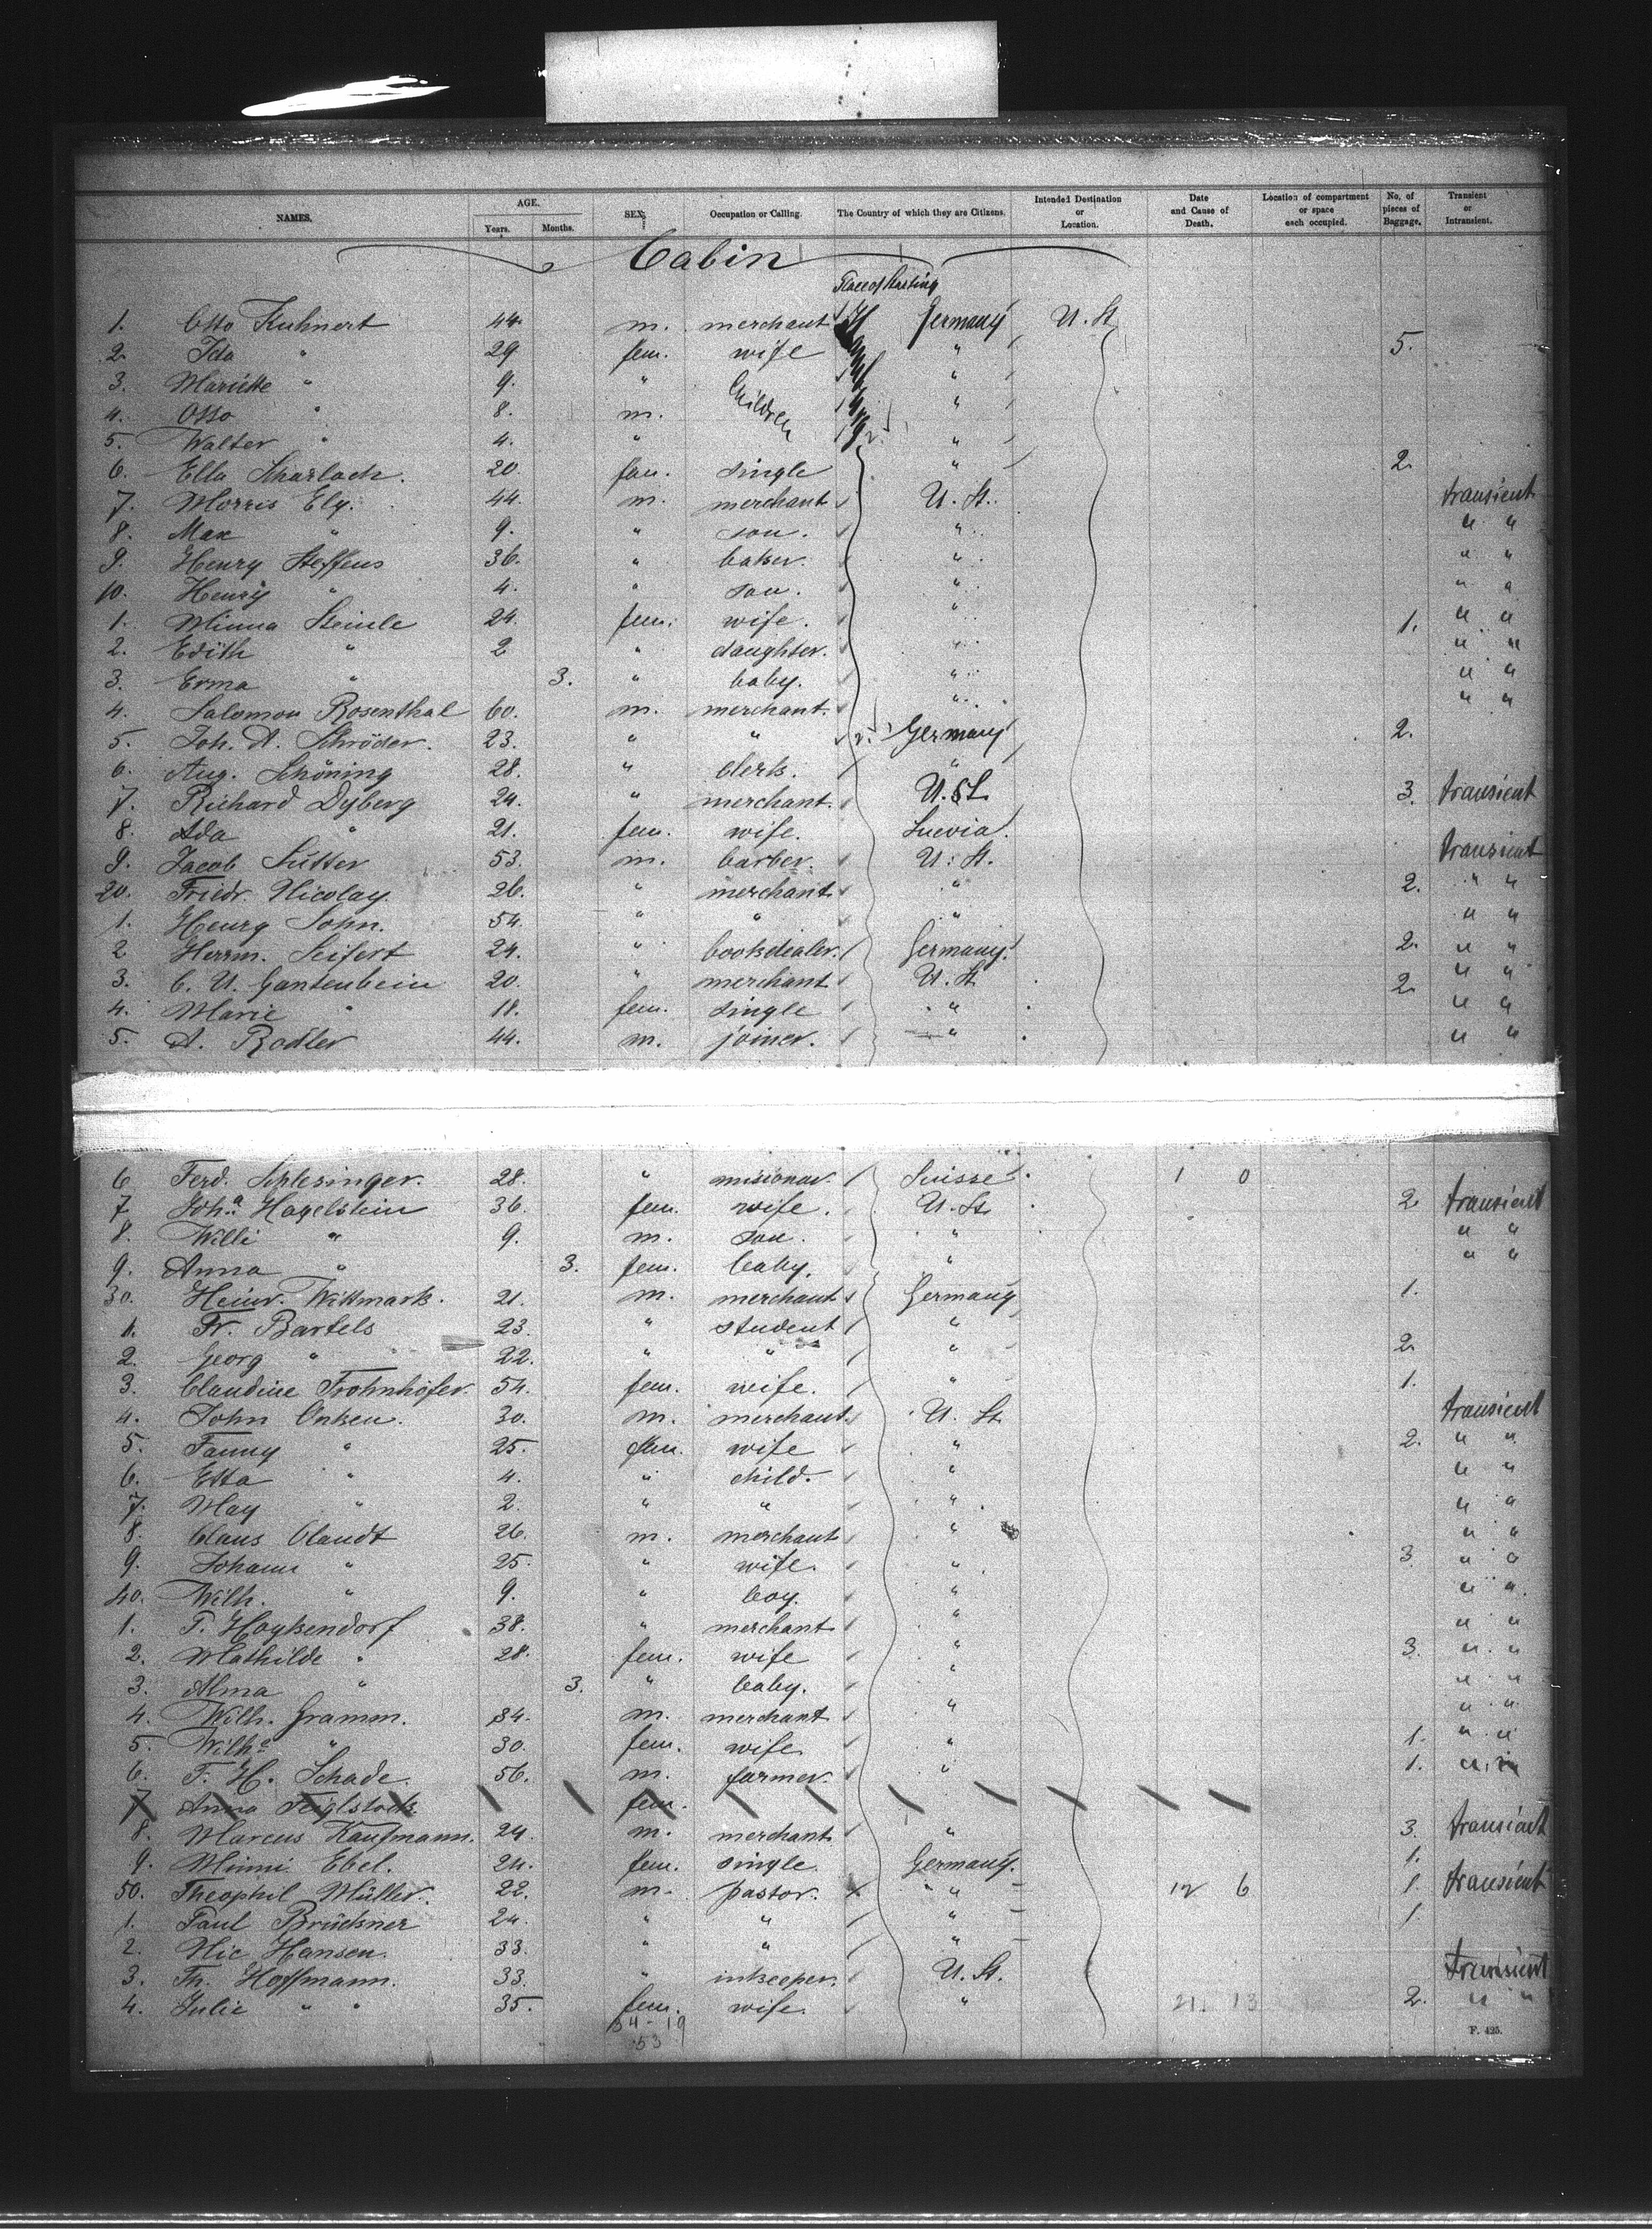 NAMES. AGE. Years. Months. SEX. Occupation or Calling. The Country of which they are Citizens. Intended Destination or Location. Date and Cause of Death. Location of compartment or space each occupied. No. of pieces of Baggage. Transient or Intransient.
Cabin
Place of Starting
1. Otto Kuhnert 44. m. merchant Germany U. St.
2. Ida " 29 fem. wife " 5.
3. Mariette " 9. " Children "
4. Otto " 8. m. "
5. Walter " 4. " "
6. Ella Scharlach. 20. fem. single " 2.
7. Morris Ely. 44. m. merchant U. St. transient
8. Max " 9. " son. " " "
9. Henry Steffens 36. " baker. " " "
10. Henry " 4. " son. " " "
1. Minna Steinle 24. fem. wife. " 1. " "
2. Edith " 2 " daughter. " " "
3. Erma " 3. " baby. " " "
4. Salomon Rosenthal 60. m. merchant. " " "
5. Joh. A. Schröder. 23. " " Germany 2.
6. Aug. Schöning 28. " Clerk. "
7. Richard Dyberg 24. " merchant. U. St. 3. transient
8. Ada " 21. fem. wife. Suevia.
9. Jacob Sutter 53. m. barber. U. St. transient
20. Friedr. Nicolay. 26. " merchant " 2. " "
1. Henry Sohn. 54. " " " " "
2 Herrm. Seifert 24. " bookdealer. Germany. 2. " "
3. C. U. Gantenbein 20. " merchant U. St. 2. " "
4. Marie " 18. fem. single " " "
5. A. Rodler 44. m. joiner. " " "
6 Ferd. Schlesinger. 28. " misionar. Suisse 1 0
7 Joh.a Hagelstein 36. fem. wife. U. St. 2 transient
8. Willi " 9. m. son. " " "
9. Anna " 3. fem. baby. " " "
30. Heinr. Wittmark. 21. m. merchant Germany 1.
1. Fr. Bartels 23. " student "
2. Georg " 22. " " " 2.
3. Claudine Frohnhöfer. 54. fem. wife. " 1.
4. John Onken. 30. m. merchant. U. St. transient
5. Fanny " 25. fem. wife " 2. " "
6. Etta " 4. " child. " " "
7. May " 2. " " " " "
8. Claus Claudt 26. m. merchant " " "
9. Johann " 25. " wife. " 3. " "
40. Wilh. " 9. " boy. " " "
1. T. Hoykendorf 38. " merchant " " "
2. Mathilde " 28. fem. wife " 3. " "
3. Alma " 3. " baby. " " "
4. Wilh. Gramm. 34. m. merchant " " "
5. Wilh.e " 30. fem. wife " 1. " "
6. F. H. Schade. 56. m. farmer. " 1. " "
7 Anna fem.
8. Marcus Kaufmann. 24. m. merchant " 3. transient
9. Minni Ebel. 24. fem. single Germany. 1.
50. Theophil Müller. 22. m. pastor. " 12 6 1. transient
1. Paul Brückner 24. " " " 1.
2. Nic Hansen. 33. " " "
3. Th. Hoffmann. 33. " inkeeper. U. St. transient
4. Julie " " 35. fem. wife. " 21. 13 2. " "
34-19
53
F. 425.